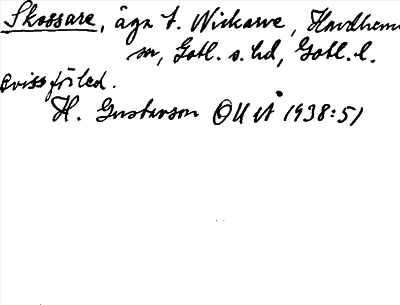 Skossare, äga t. Wickarve, Hardhem
sn, Gotl. s. hd, Gotl. l.
ovisst förled.
H. Gustavson OUÅ 1938:51